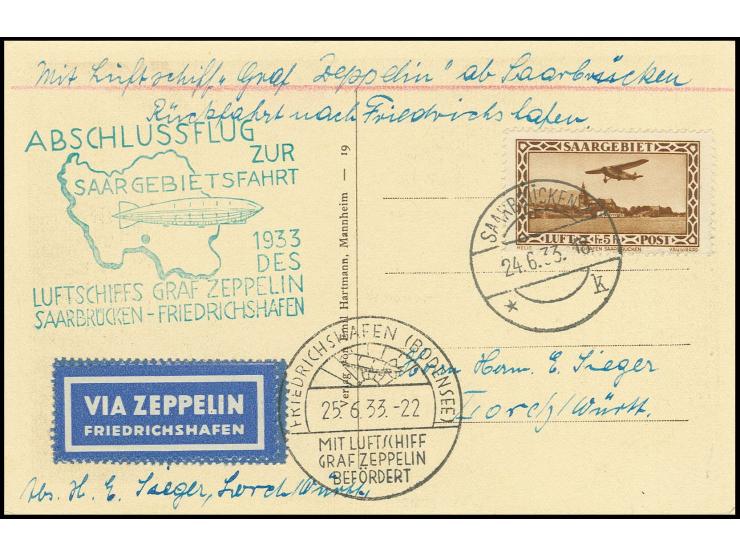 Mit Luftschiff „Graf Zeppelin" ab Saarbrücken
Rückfahrt nach Friedrichshafen
ABSCHLUSSFLUG
ZUR
SAARGEBIETSFAHRT
1933
DES
LUFTSCHIFFS GRAF ZEPPELIN
SAARBRÜCKEN - FRIEDRICHSHAFEN
Verlag von Emil Hartmann, Mannheim — 19
SAARGEBIET
LUFT 5 Fr. POST
SAARBRÜCKEN
24.6.33.18
* k
FRIEDRICHSHAFEN (BODENSEE)
25.6.33.-22
MIT LUFTSCHIFF
GRAF ZEPPELIN
BEFÖRDERT
Herrn Herm. E. Sieger
Lorch/Württ.
VIA ZEPPELIN
FRIEDRICHSHAFEN
Abs. H. E. Sieger, Lorch/Württ.